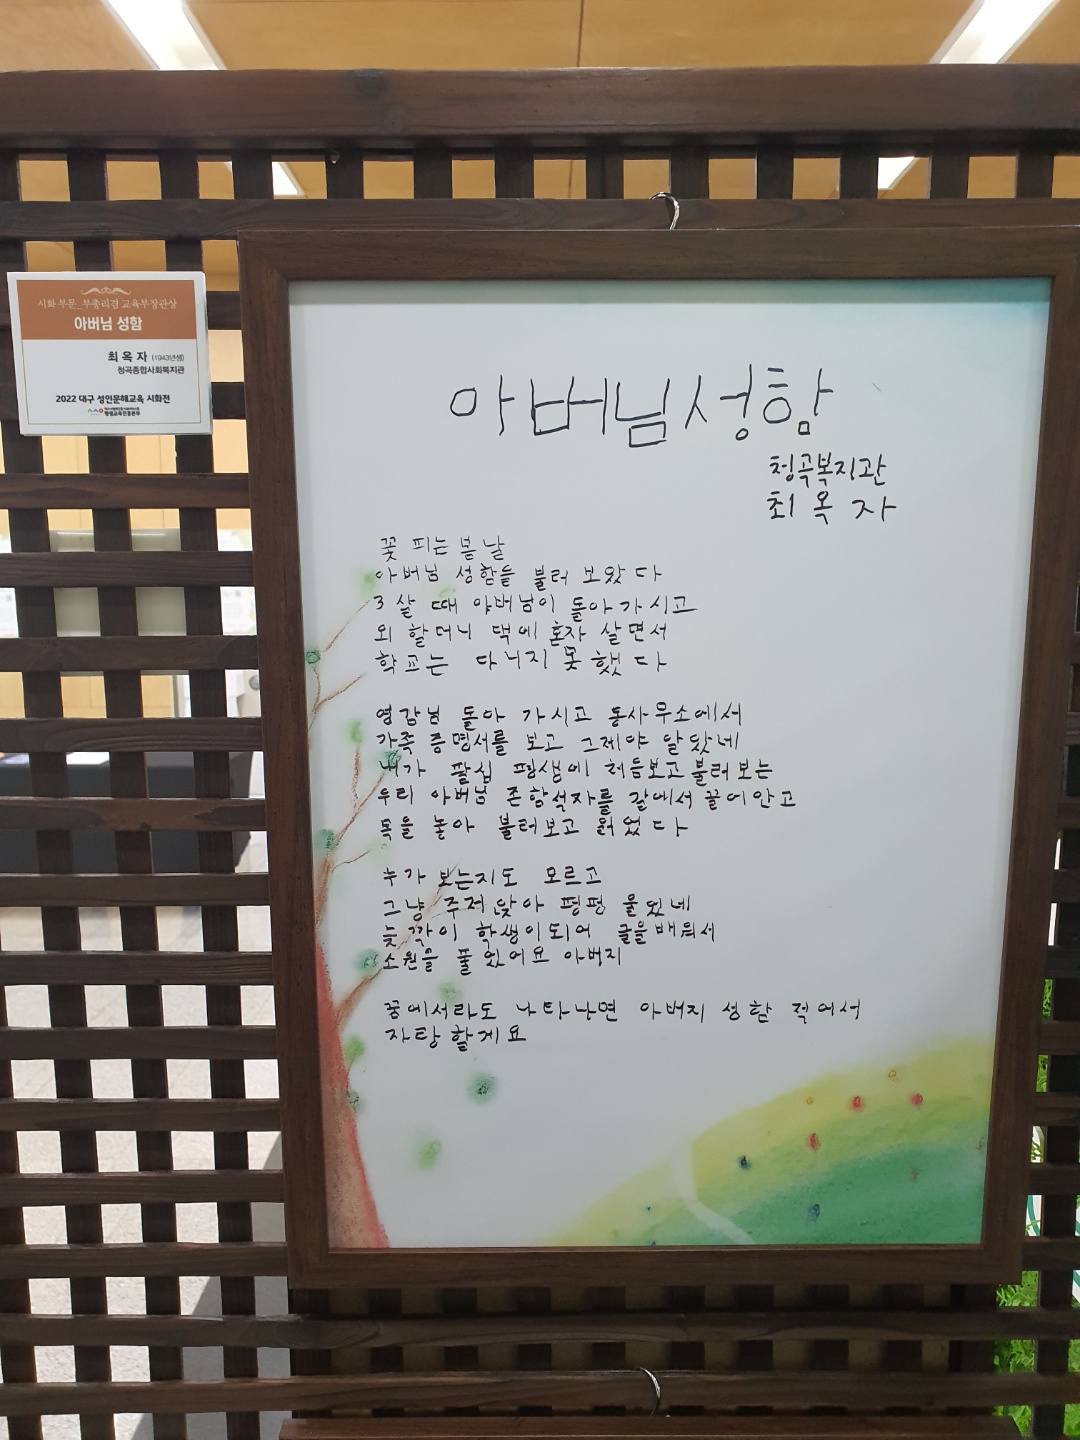 시화 부문_부총리겸 교육부장관상
아버님 성함
최 옥 자 (1943년생)
청곡종합사회복지관
2022 대구 성인문해교육 시화전
평생교육진흥본부
아버님 성함
청곡복지관
최 옥 자
꽃 피는 봄 날
아버님 성함을 불러 보았 다
3 살 때 아버님이 돌아 가 시고
외 할머니 댁에 혼자 살면서
학교는 다니지 못 했 다
영감님 돌아 가 시고 동사무소에서
가족 증명서를 보고 그제야 알 았네
내가 팔십 평생에 처음보고 불러보는
우리 아버님 존함석자를 곁에서 끌어안고
목을 놓아 불러보고 읽었 다
누가 보는지도 모르고
그냥 주저 앉아 펑펑 울 었네
늦 깍이 학생이 되어 글을 배워서
소원을 풀 었어요 아버지
꿈에서라도 나타나면 아버지 성함 적어서
자랑 할게요